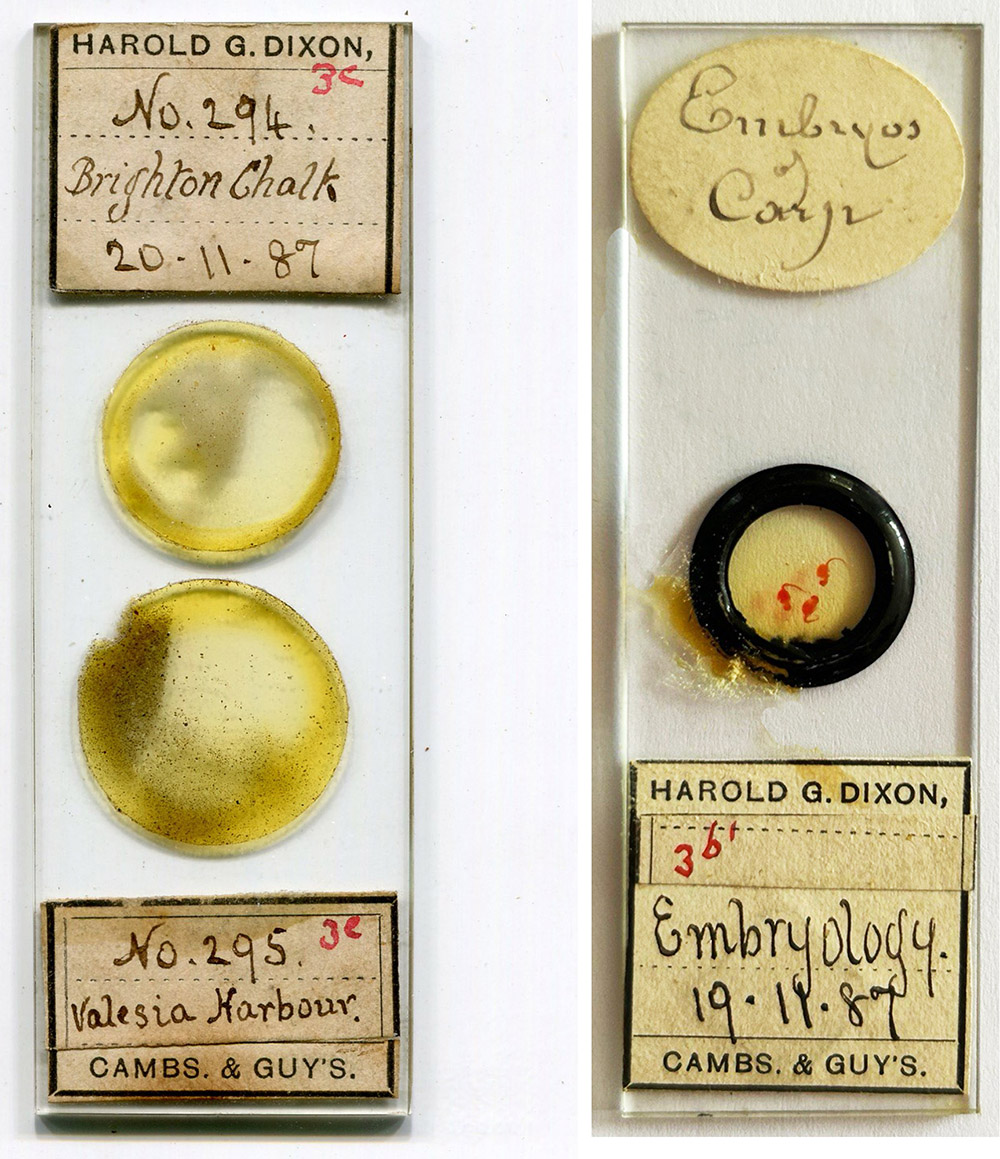 HAROLD G. DIXON,
3c
No. 294.
Brighton Chalk
20-11-87
No. 295. 3e
Valesia Harbour.
CAMBS. & GUY'S.
Embryos
of
Carp
HAROLD G. DIXON,
3b'
Embryology.
19.11.87
CAMBS. & GUY'S.